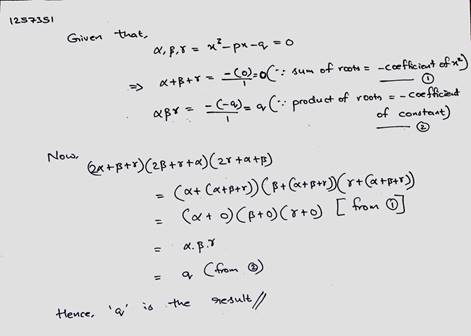 1257351
Given that,
α, β, γ = x² - px - q = 0
⇒ α+β+γ = -(0)/1 = 0 (∵ sum of roots = -coefficient of x²) — ①
αβγ = -(-q)/1 = q (∵ product of roots = -coefficient of constant) — ②
Now,
(2α+β+γ)(2β+γ+α)(2γ+α+β)
= (α+(α+β+γ))(β+(α+β+γ))(γ+(α+β+γ))
= (α+0)(β+0)(γ+0) [from ①]
= α.β.γ
= q (from ②)
Hence, 'q' is the result //